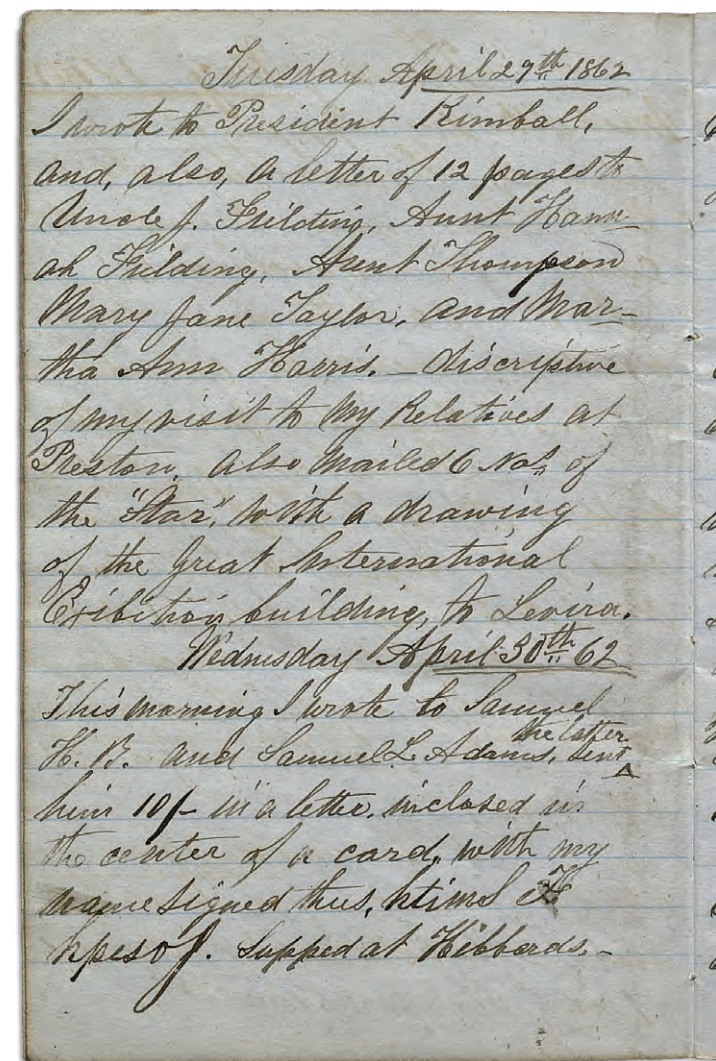 Tuesday April 29th 1862
I wrote to President Kimball,
and, also, a letter of 12 pages to
Uncle J. Feilding, Aunt Hann-
ah Feilding, Aunt Thompson
Mary Jane Taylor, and Mar-
tha Ann Harris. – discriptive
of my visit to my Relatives at
Preston, also mailed 6 Nos. of
the "Star", with a drawing
of the Great International
Exibition building, to Levira.
Wednesday April 30th 62
This morning I wrote to Samuel
H. B. and Samuel L. Adams, sent
the latter
him 10/– in a letter, inclosed in
the center of a card, with my
name signed thus, htims F
hpesoj. Supped at Hibbards. –